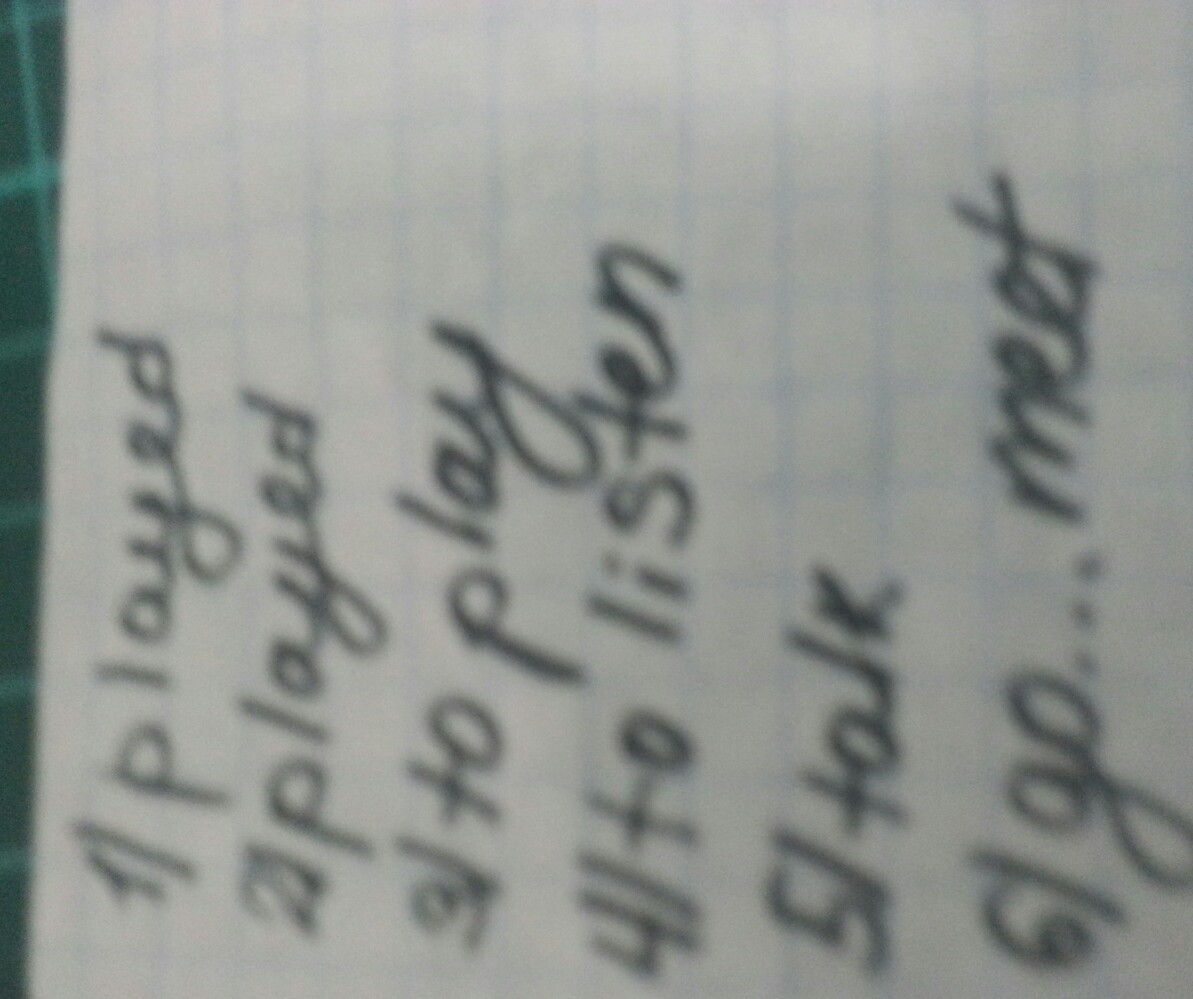 1) played
2) played
3) to play
4) to listen
5) talk
6) go... meet